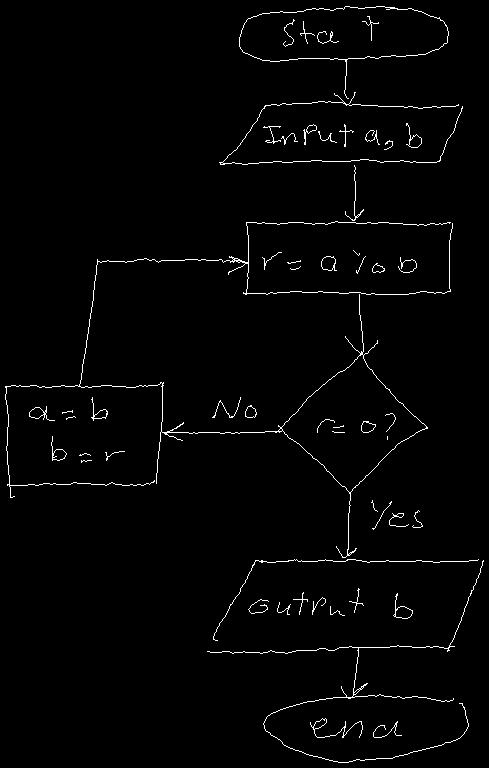 Start
Input a, b
r = a % b
r = 0 ?
No
a = b
b = r
Yes
output b
end